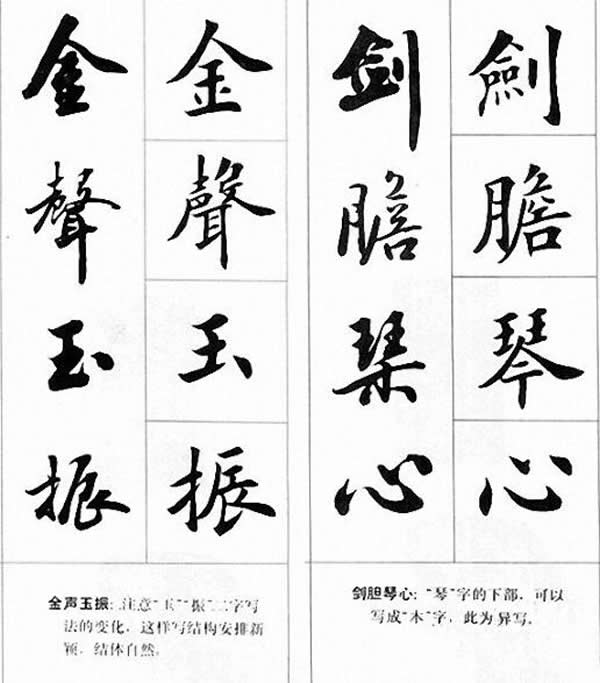 金聲玉振
金聲玉振
金声玉振：注意“玉”“振”二字写
法的变化，这样写结构安排新
颖，结体自然。
劍膽琹心
劍膽琴心
剑胆琴心：“琴”字的下部，可以
写成“木”字，此为异写。